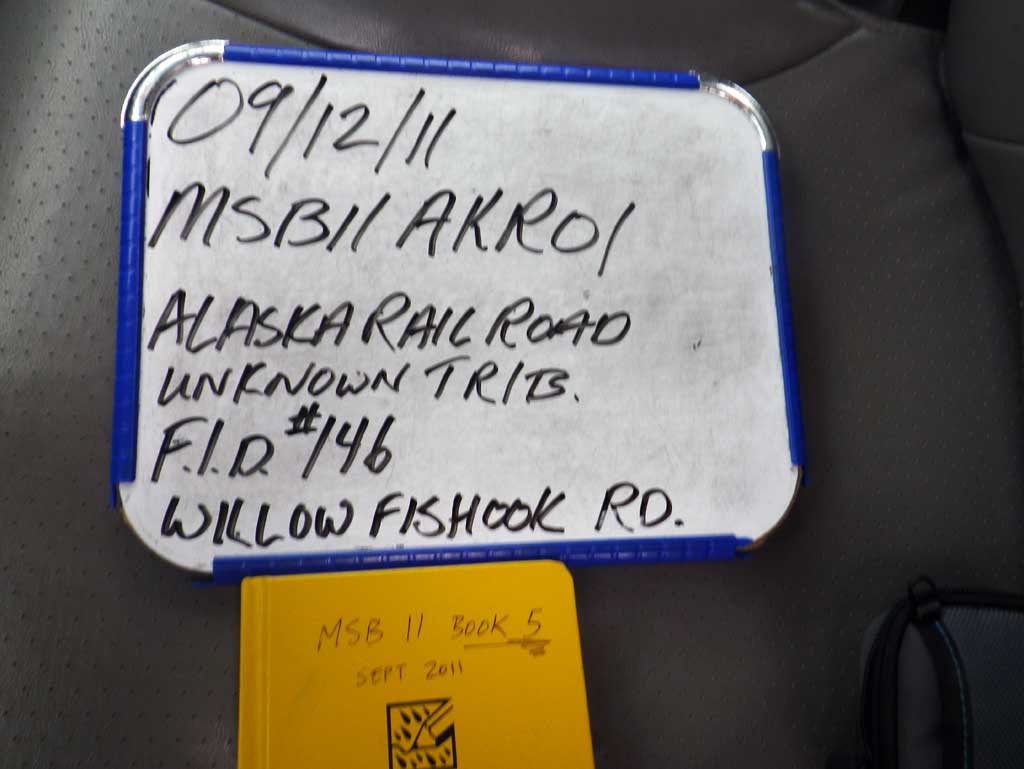 09/12/11
MSB11AKR01
ALASKA RAILROAD
UNKNOWN TRIB.
F.I.D. #146
WILLOW FISHOOK RD.
MSB 11 BOOK 5
SEPT 2011